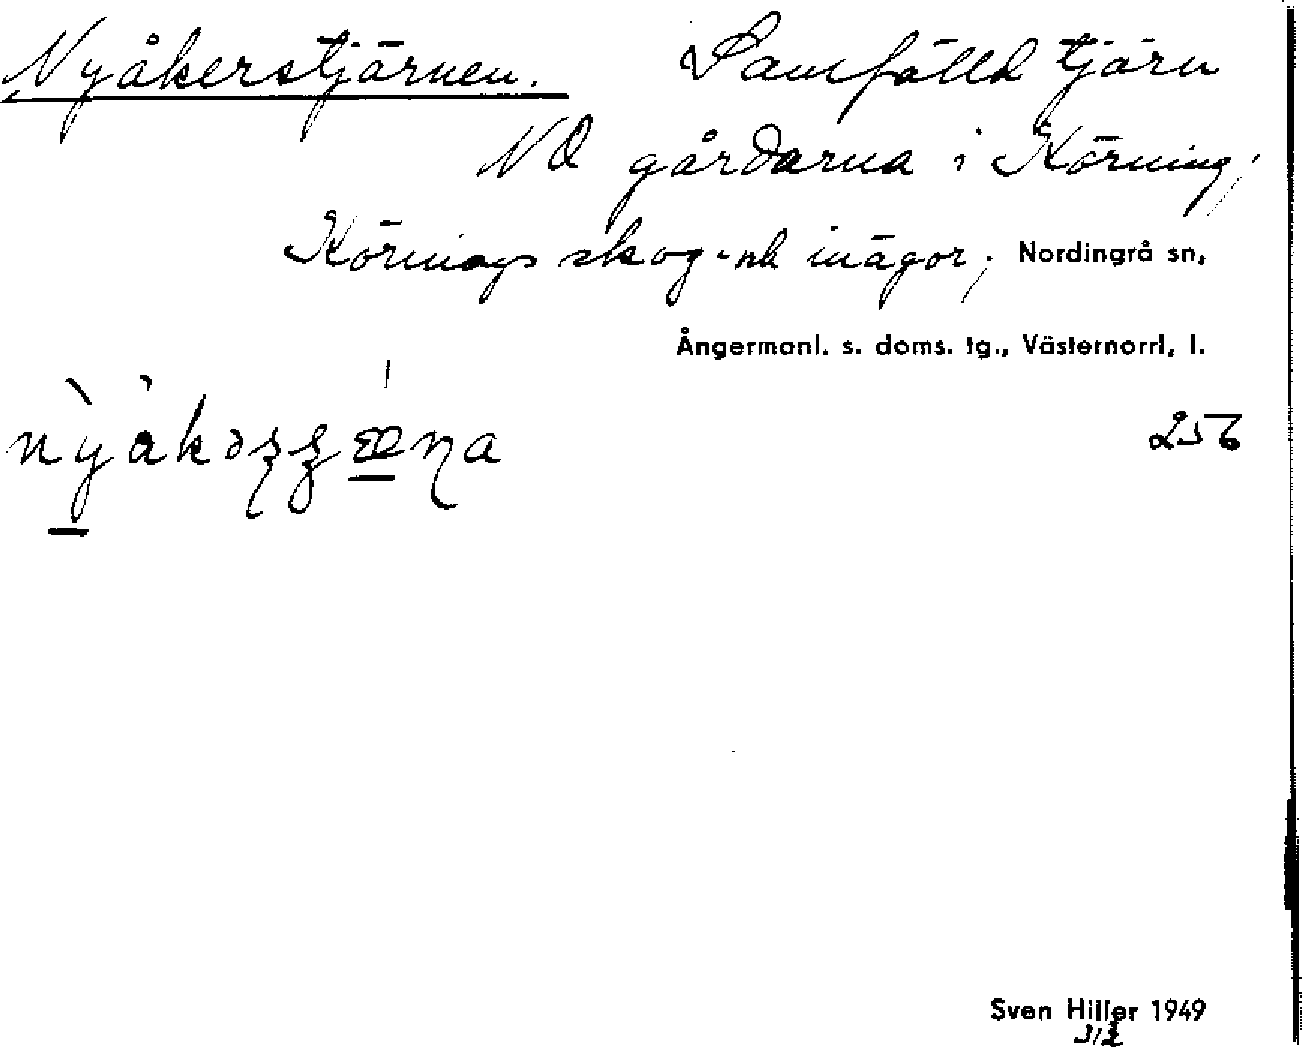 Nyåkerstjärnen. Samfälld tjärn
NO gårdarna i Körning,
Körnings skog- och inägor, Nordingrå sn,
Ångermanl. s. doms. tg., Västernorrl. l.
256
Sven Hiller 1949